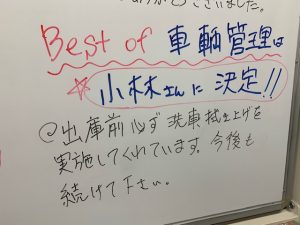 ございました。
Best of 車輌管理は
☆小林さんに 決定!!
◎出庫前必ず洗車拭き上げを
実施してくれています。今後も
続けて下さい。